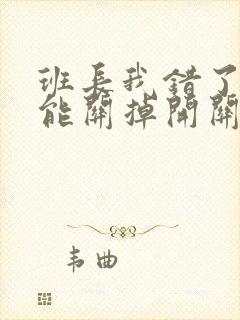 班长我错了
能關掉開關
韦曲